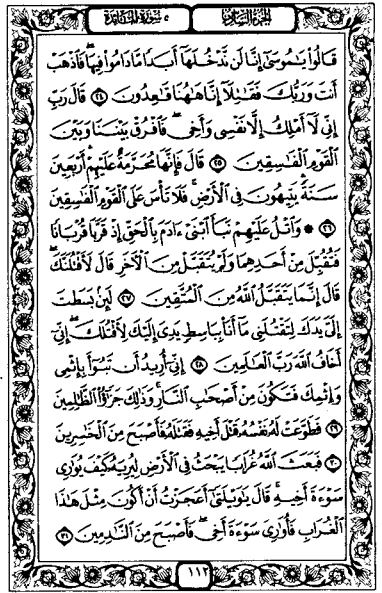 الجزء السادس
سورة المائدة ٥
قَالُوا۟ يَـٰمُوسَىٰٓ إِنَّا لَن نَّدْخُلَهَآ أَبَدًا مَّا دَامُوا۟ فِيهَا ۖ فَٱذْهَبْ
أَنتَ وَرَبُّكَ فَقَـٰتِلَآ إِنَّا هَـٰهُنَا قَـٰعِدُونَ ٢٤ قَالَ رَبِّ
إِنِّى لَآ أَمْلِكُ إِلَّا نَفْسِى وَأَخِى ۖ فَٱفْرُقْ بَيْنَنَا وَبَيْنَ
ٱلْقَوْمِ ٱلْفَـٰسِقِينَ ٢٥ قَالَ فَإِنَّهَا مُحَرَّمَةٌ عَلَيْهِمْ ۛ أَرْبَعِينَ
سَنَةً ۛ يَتِيهُونَ فِى ٱلْأَرْضِ ۚ فَلَا تَأْسَ عَلَى ٱلْقَوْمِ ٱلْفَـٰسِقِينَ
٢٦ ۞ وَٱتْلُ عَلَيْهِمْ نَبَأَ ٱبْنَىْ ءَادَمَ بِٱلْحَقِّ إِذْ قَرَّبَا قُرْبَانًا
فَتُقُبِّلَ مِنْ أَحَدِهِمَا وَلَمْ يُتَقَبَّلْ مِنَ ٱلْـَٔاخَرِ قَالَ لَأَقْتُلَنَّكَ ۖ
قَالَ إِنَّمَا يَتَقَبَّلُ ٱللَّهُ مِنَ ٱلْمُتَّقِينَ ٢٧ لَئِنۢ بَسَطتَ
إِلَىَّ يَدَكَ لِتَقْتُلَنِى مَآ أَنَا۠ بِبَاسِطٍ يَدِىَ إِلَيْكَ لِأَقْتُلَكَ ۖ إِنِّىٓ
أَخَافُ ٱللَّهَ رَبَّ ٱلْعَـٰلَمِينَ ٢٨ إِنِّىٓ أُرِيدُ أَن تَبُوٓأَ بِإِثْمِى
وَإِثْمِكَ فَتَكُونَ مِنْ أَصْحَـٰبِ ٱلنَّارِ ۚ وَذَٰلِكَ جَزَٰٓؤُا۟ ٱلظَّـٰلِمِينَ
٢٩ فَطَوَّعَتْ لَهُۥ نَفْسُهُۥ قَتْلَ أَخِيهِ فَقَتَلَهُۥ فَأَصْبَحَ مِنَ ٱلْخَـٰسِرِينَ
٣٠ فَبَعَثَ ٱللَّهُ غُرَابًا يَبْحَثُ فِى ٱلْأَرْضِ لِيُرِيَهُۥ كَيْفَ يُوَٰرِى
سَوْءَةَ أَخِيهِ ۚ قَالَ يَـٰوَيْلَتَىٰٓ أَعَجَزْتُ أَنْ أَكُونَ مِثْلَ هَـٰذَا
ٱلْغُرَابِ فَأُوَٰرِىَ سَوْءَةَ أَخِى ۖ فَأَصْبَحَ مِنَ ٱلنَّـٰدِمِينَ ٣١
١١٢